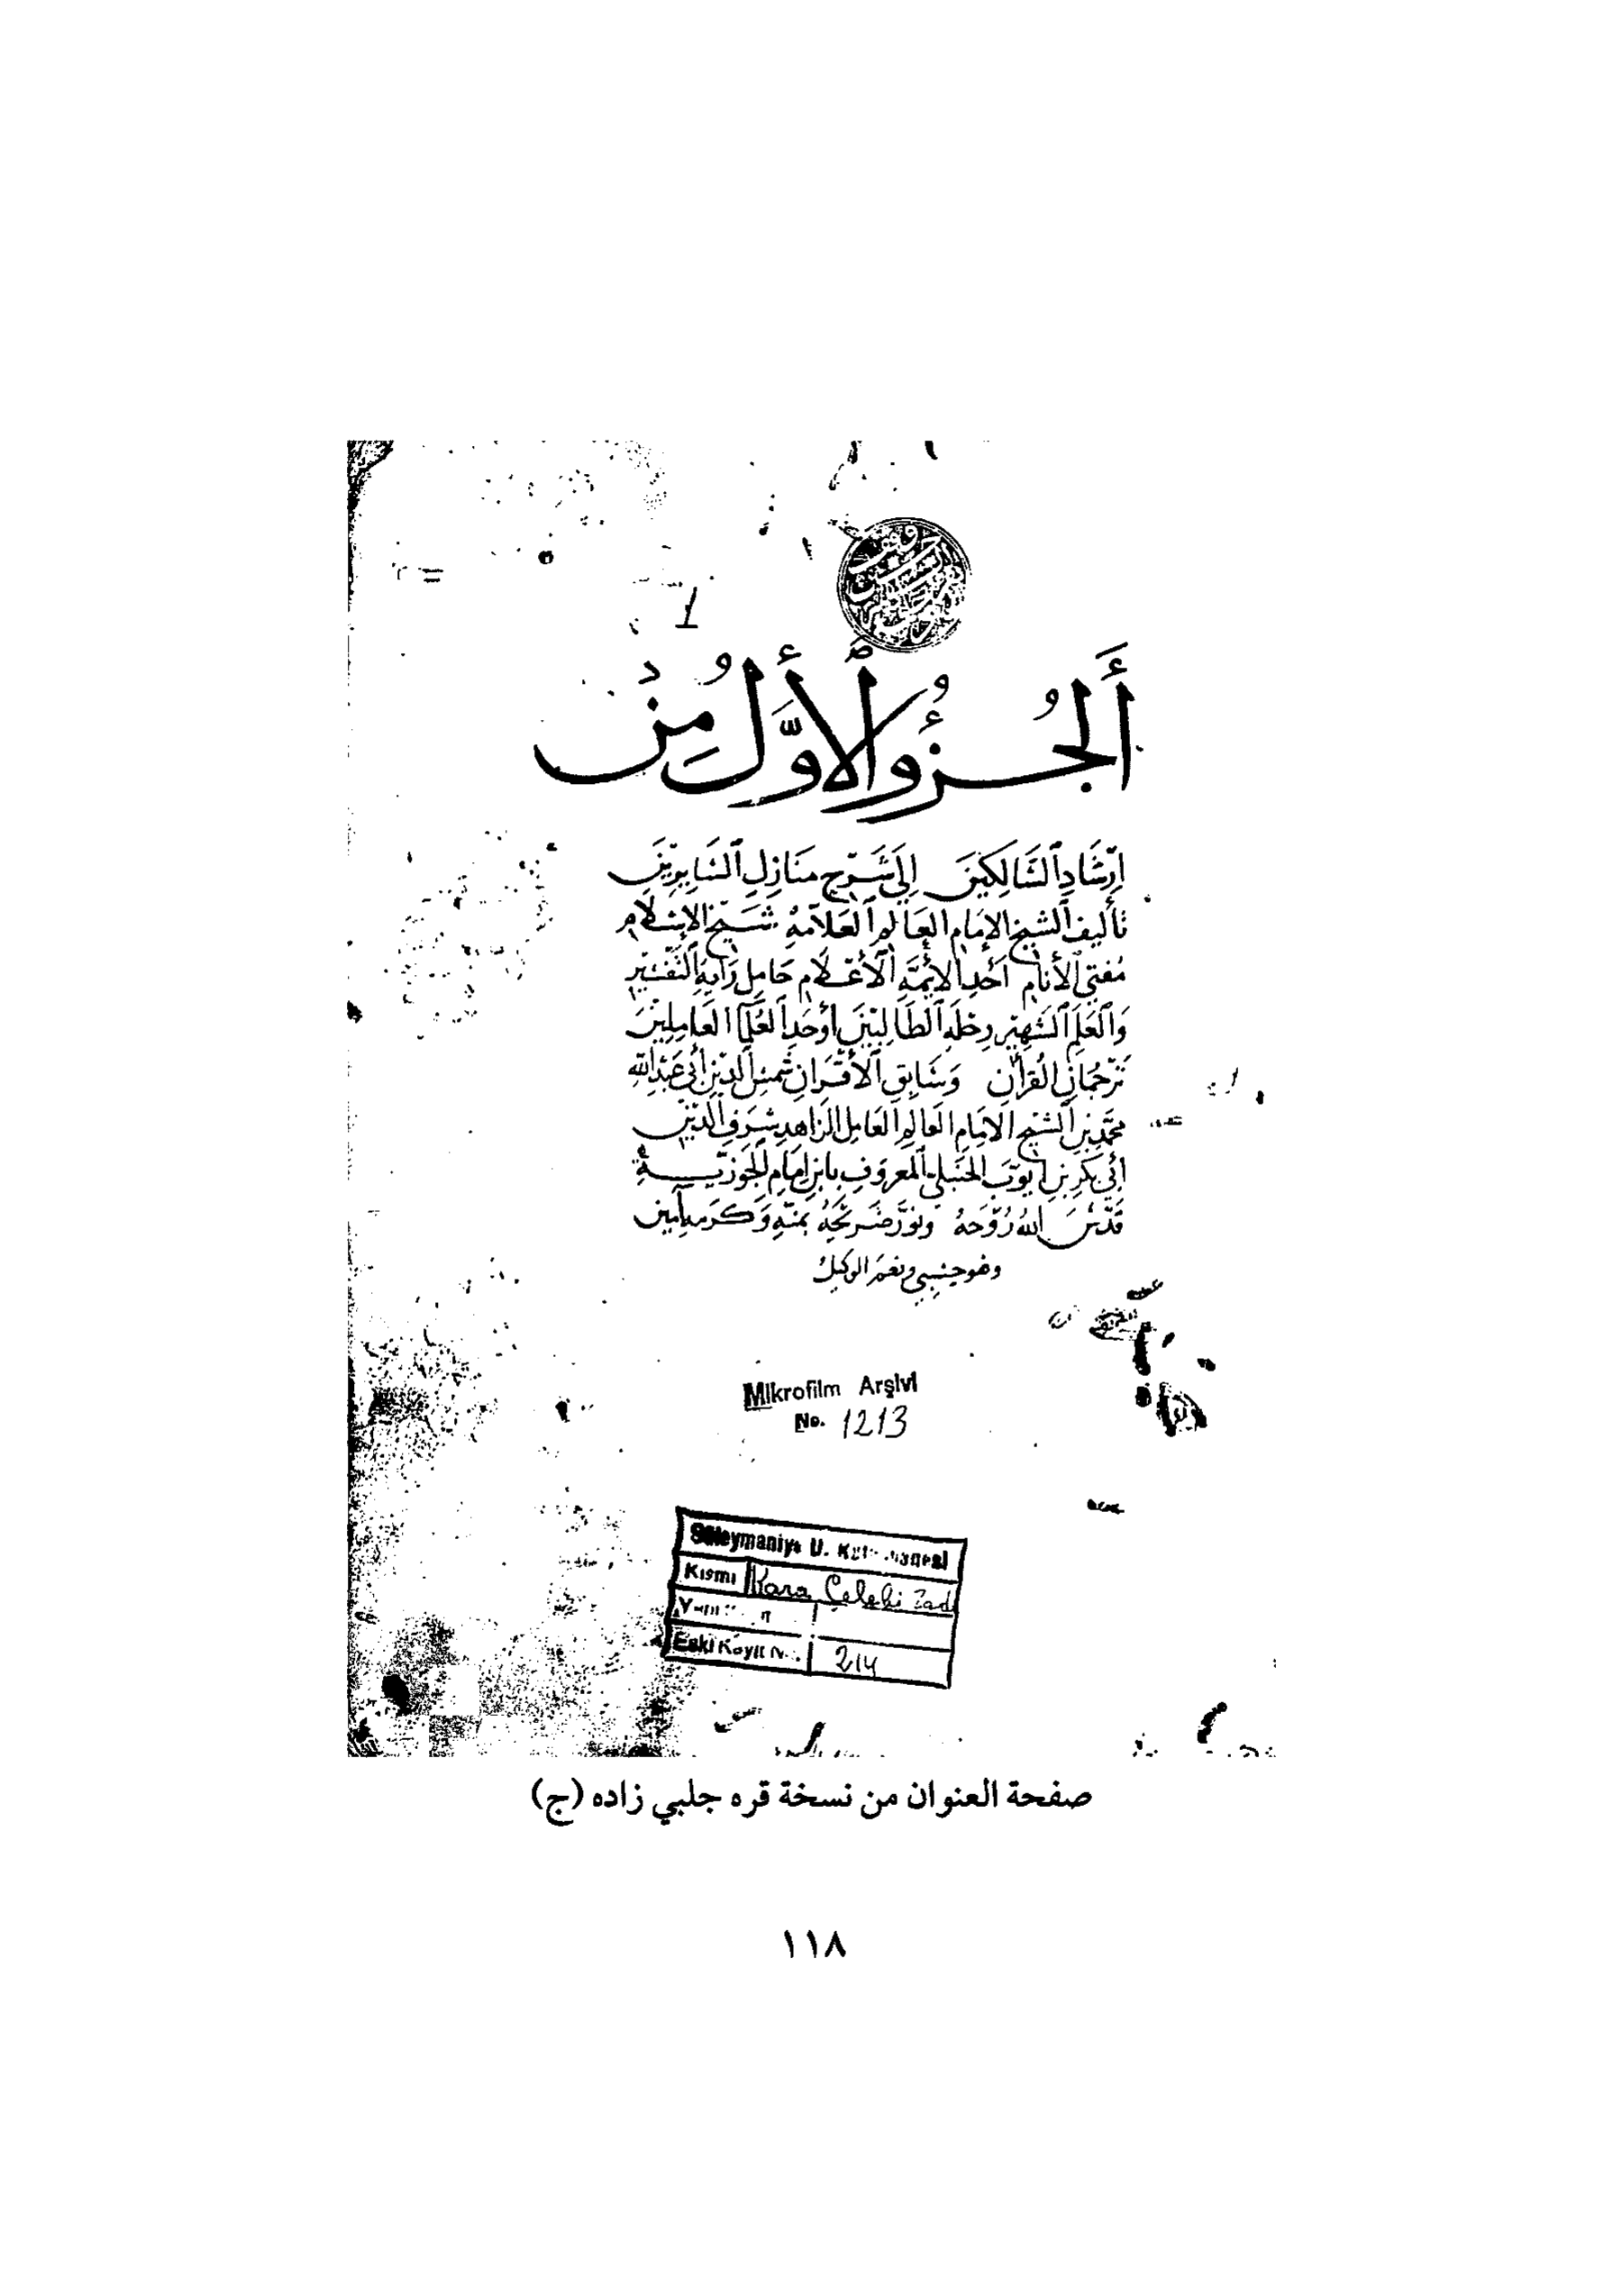 1
أَلجُزُؤُ ٱلأَوَّلُ مِنْ
إِرْشَادِ ٱلسَّالِكِينَ إِلَى شَرْحِ مَنَازِلِ ٱلسَّايِرِينَ
تأليف ٱلشيخ الإمَام العَالِم ٱلعَلاَّمَةِ شَيْخ الإسْلَام
مُفتِي الأنام أَحَدِ الأئِمَّةِ ٱلأَعْلَام حَامِل رَايةِ ٱلتَّفْسِير
وَٱلعَلَمِ ٱلشَهِير رِحْلَةِ ٱلطَالِبِينَ أوْحَدِ ٱلعُلَمَآ العَامِلِينَ
تَرْجُمَانِ القُرآن وَسَابِقِ ٱلأقْرَانِ شَمْسِ ٱلدِينِ أبي عَبْدِ اللهِ
محَمَّدِ بنِ ٱلشيخ الامَام العَالِم العَامِل ٱلزَاهِدِ شَرَفِ ٱلدِينِ
أبي بَكرِ بنِ أيوّبَ الحَنبَلي ٱلمَعرُوفِ بابنِ إمَامِ ٱلجَوزيَّةِ
قَدَّسَ اللهُ رُوْحَهُ ونوَّرَ ضَرِيحَهُ بمنّهِ وَكَرَمِهِ آمين
وهُو حَسْبي ونعْمَ الوكيلُ
Mikrofilm Arşivi
No. 1213
Süleymaniye U. Kütüphanesi
Kısmı Kara Çelebi Zade
Eski Kayıt No. 214
صفحة العنوان من نسخة قره جلبي زاده (ج)
١١٨